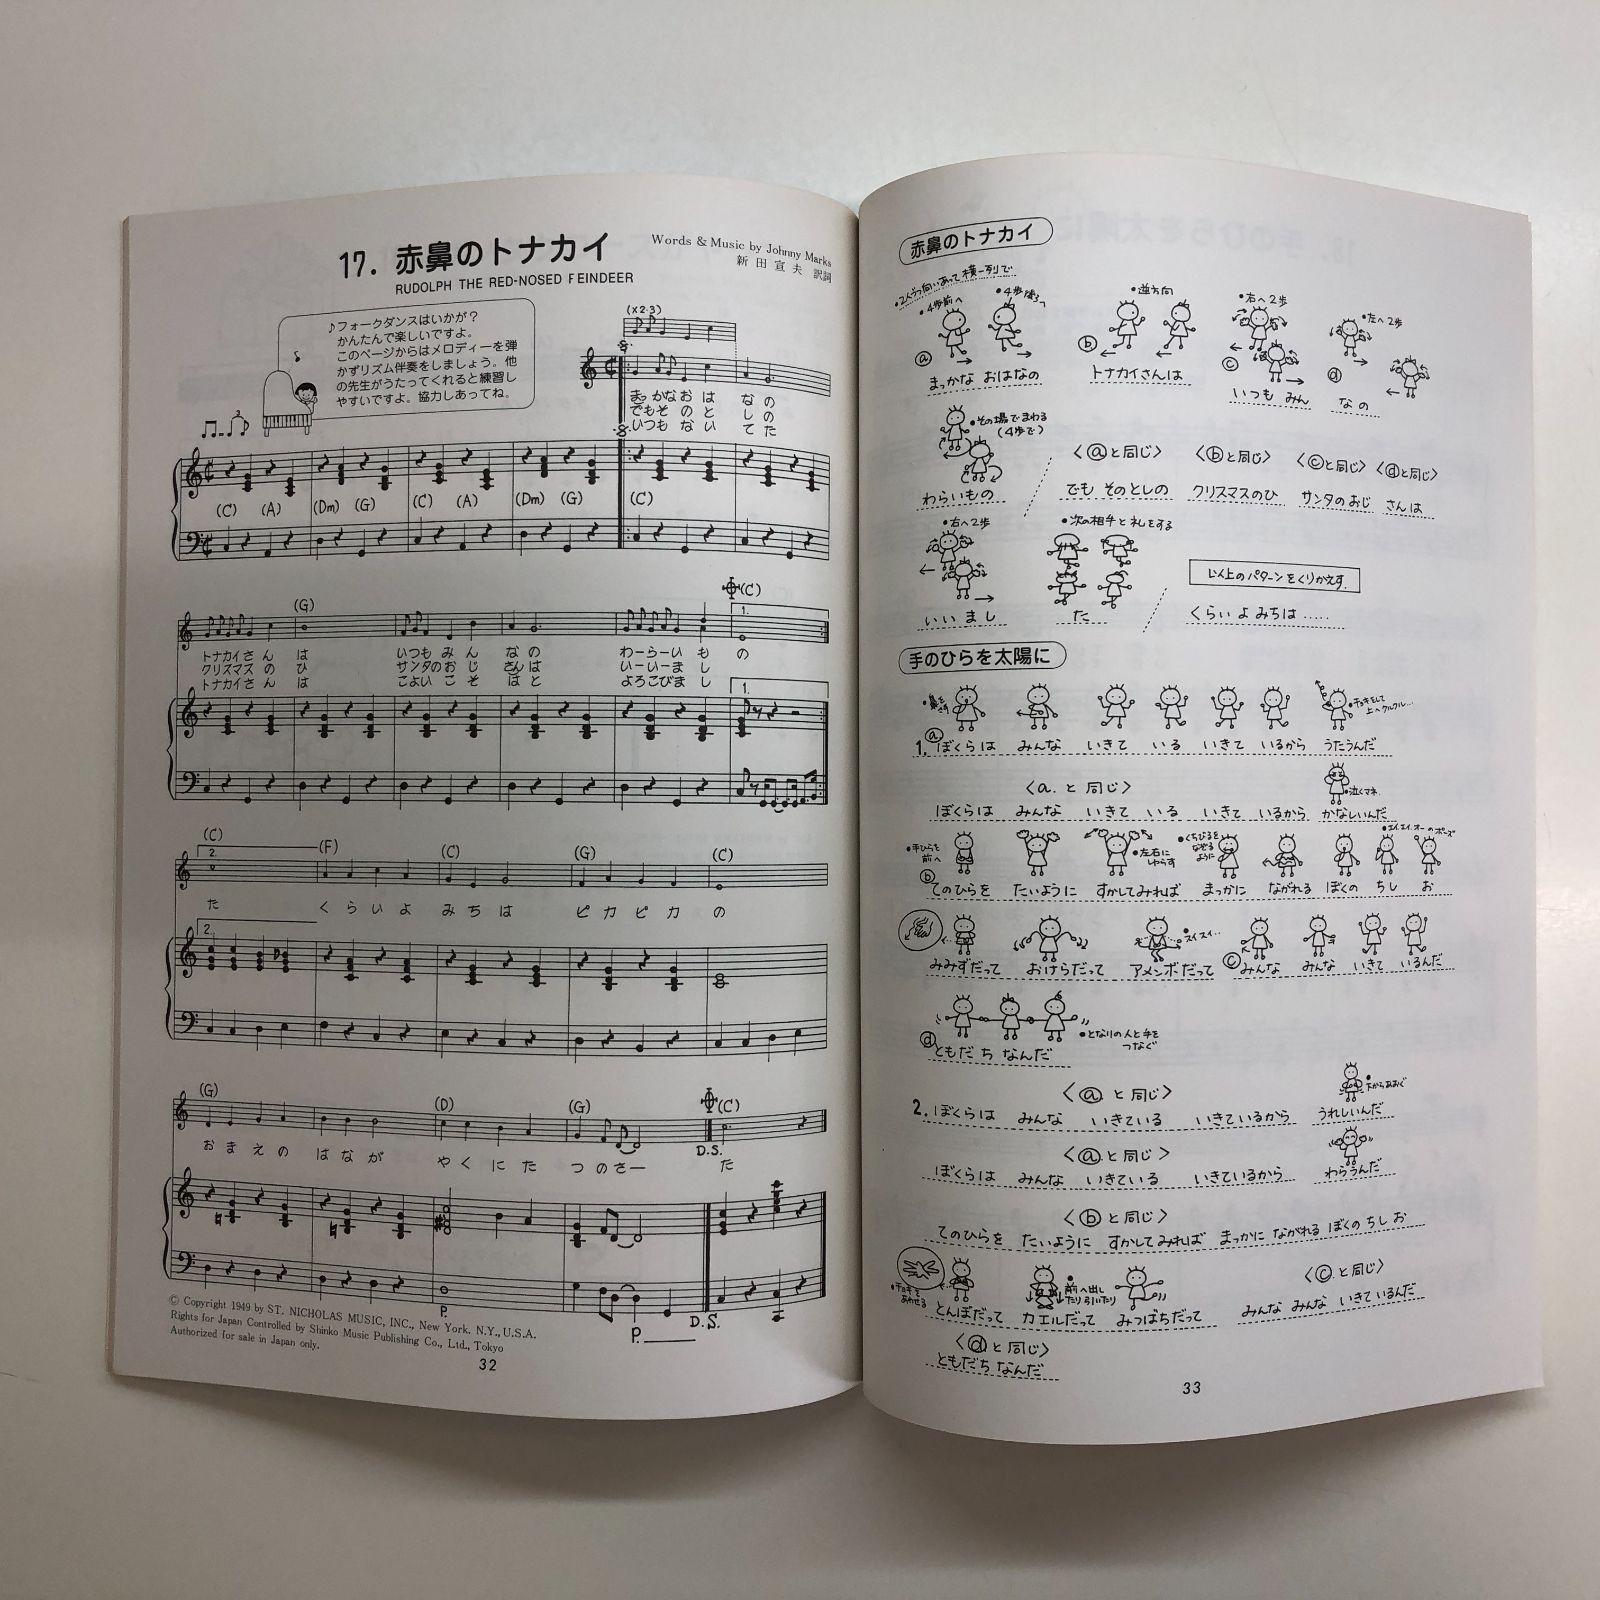 17. 赤鼻のトナカイ
RUDOLPH THE RED-NOSED FEINDEER
Words & Music by Johnny Marks
新田宣夫 訳詞
♪フォークダンスはいかが？
かんたんで楽しいですよ。
このページからはメロディーを弾
かずリズム伴奏をしましょう。他
の先生がうたってくれると練習し
やすいですよ。協力しあってね。
(×2・3)
まっかなおは なの
でもそのと しの
いつもない てた
(C) (A) (Dm) (G) (C) (A) (Dm) (G) (C)
(G) (C)
1.
トナカイさん は いつもみん なの わーらいも の
クリスマスの ひ サンタのおじ さんは いーいーまし
トナカイさん は こよいこそ はと よろこびまし
1.
(C) (F) (C) (G) (C)
2.
た くらいよ みちは ピカピカ の
2.
(G) (D) (G) (C)
D.S.
おまえの はなが やくにた つのさー た
P. P. D.S.
© Copyright 1949 by ST. NICHOLAS MUSIC, INC., New York. N.Y., U.S.A.
Rights for Japan Controlled by Shinko Music Publishing Co., Ltd., Tokyo
Authorized for sale in Japan only.
32
赤鼻のトナカイ
•2人づつ向いあって横一列で
•4歩前へ •4歩後ろへ •逆方向 •右へ2歩 •左へ2歩
ⓐ ⓑ ⓒ ⓓ
まっかな おはなの トナカイさんは いつも みん なの
•その場でまわる
(4歩で)
〈ⓐと同じ〉 〈ⓑと同じ〉 〈ⓒと同じ〉 〈ⓓと同じ〉
わらいもの でも そのとしの クリスマスのひ サンタのおじ さんは
•右へ2歩 •次の相手と礼をする
以上のパターンをくりかえす.
いいまし た くらいよみちは……
手のひらを太陽に
•チョキをして
上へクルクル…
ⓐ
1. ぼくらは みんな いきて いる いきて いるから うたうんだ
〈a.と同じ〉 •泣くマネ
ぼくらは みんな いきて いる いきて いるから かなしいんだ
•手ひらを
前へ
•左右に
ゆらす
•くちびるを
なぞる
ように
•エイエイオーのポーズ
ⓑ
てのひらを たいように すかしてみれば まっかに ながれる ぼくの ちし お
•スイスイ…
みみずだって おけらだって アメンボだって ⓒ みんな みんな いきて いるんだ
•となりの人と手を
つなぐ
ⓓ
ともだ ち なんだ
〈ⓐと同じ〉
2. ぼくらは みんな いきている いきているから うれしいんだ
〈ⓐと同じ〉
ぼくらは みんな いきている いきているから わらうんだ
〈ⓑと同じ〉
てのひらを たいように すかしてみれば まっかに ながれる ぼくの ちし お
•チョキを
あわせる
•前へ出し
たり引いたり
〈ⓒと同じ〉
とんぼだって カエルだって みつばちだって みんな みんな いきているんだ
〈ⓓと同じ〉
ともだち なんだ
33